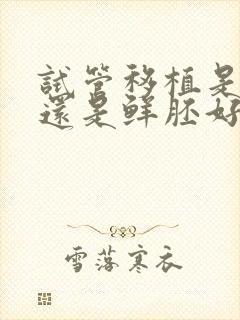 試管移植是
還是鮮胚好
雪落寒衣